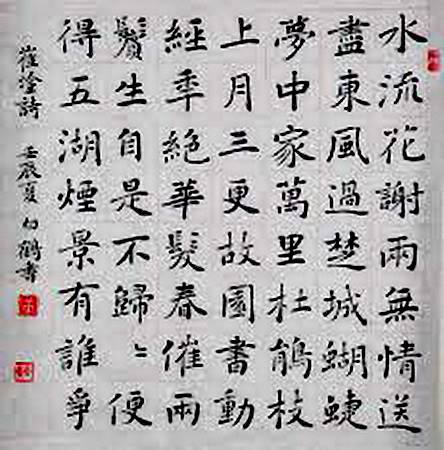 水流花謝兩無情送
盡東風過楚城蝴蝶
夢中家萬里杜鵑枝
上月三更故園書動
經秊絕華髮春催兩
鬢生自是不歸〻便
得五湖煙景有誰爭
崔塗詩 壬辰夏 鶴書